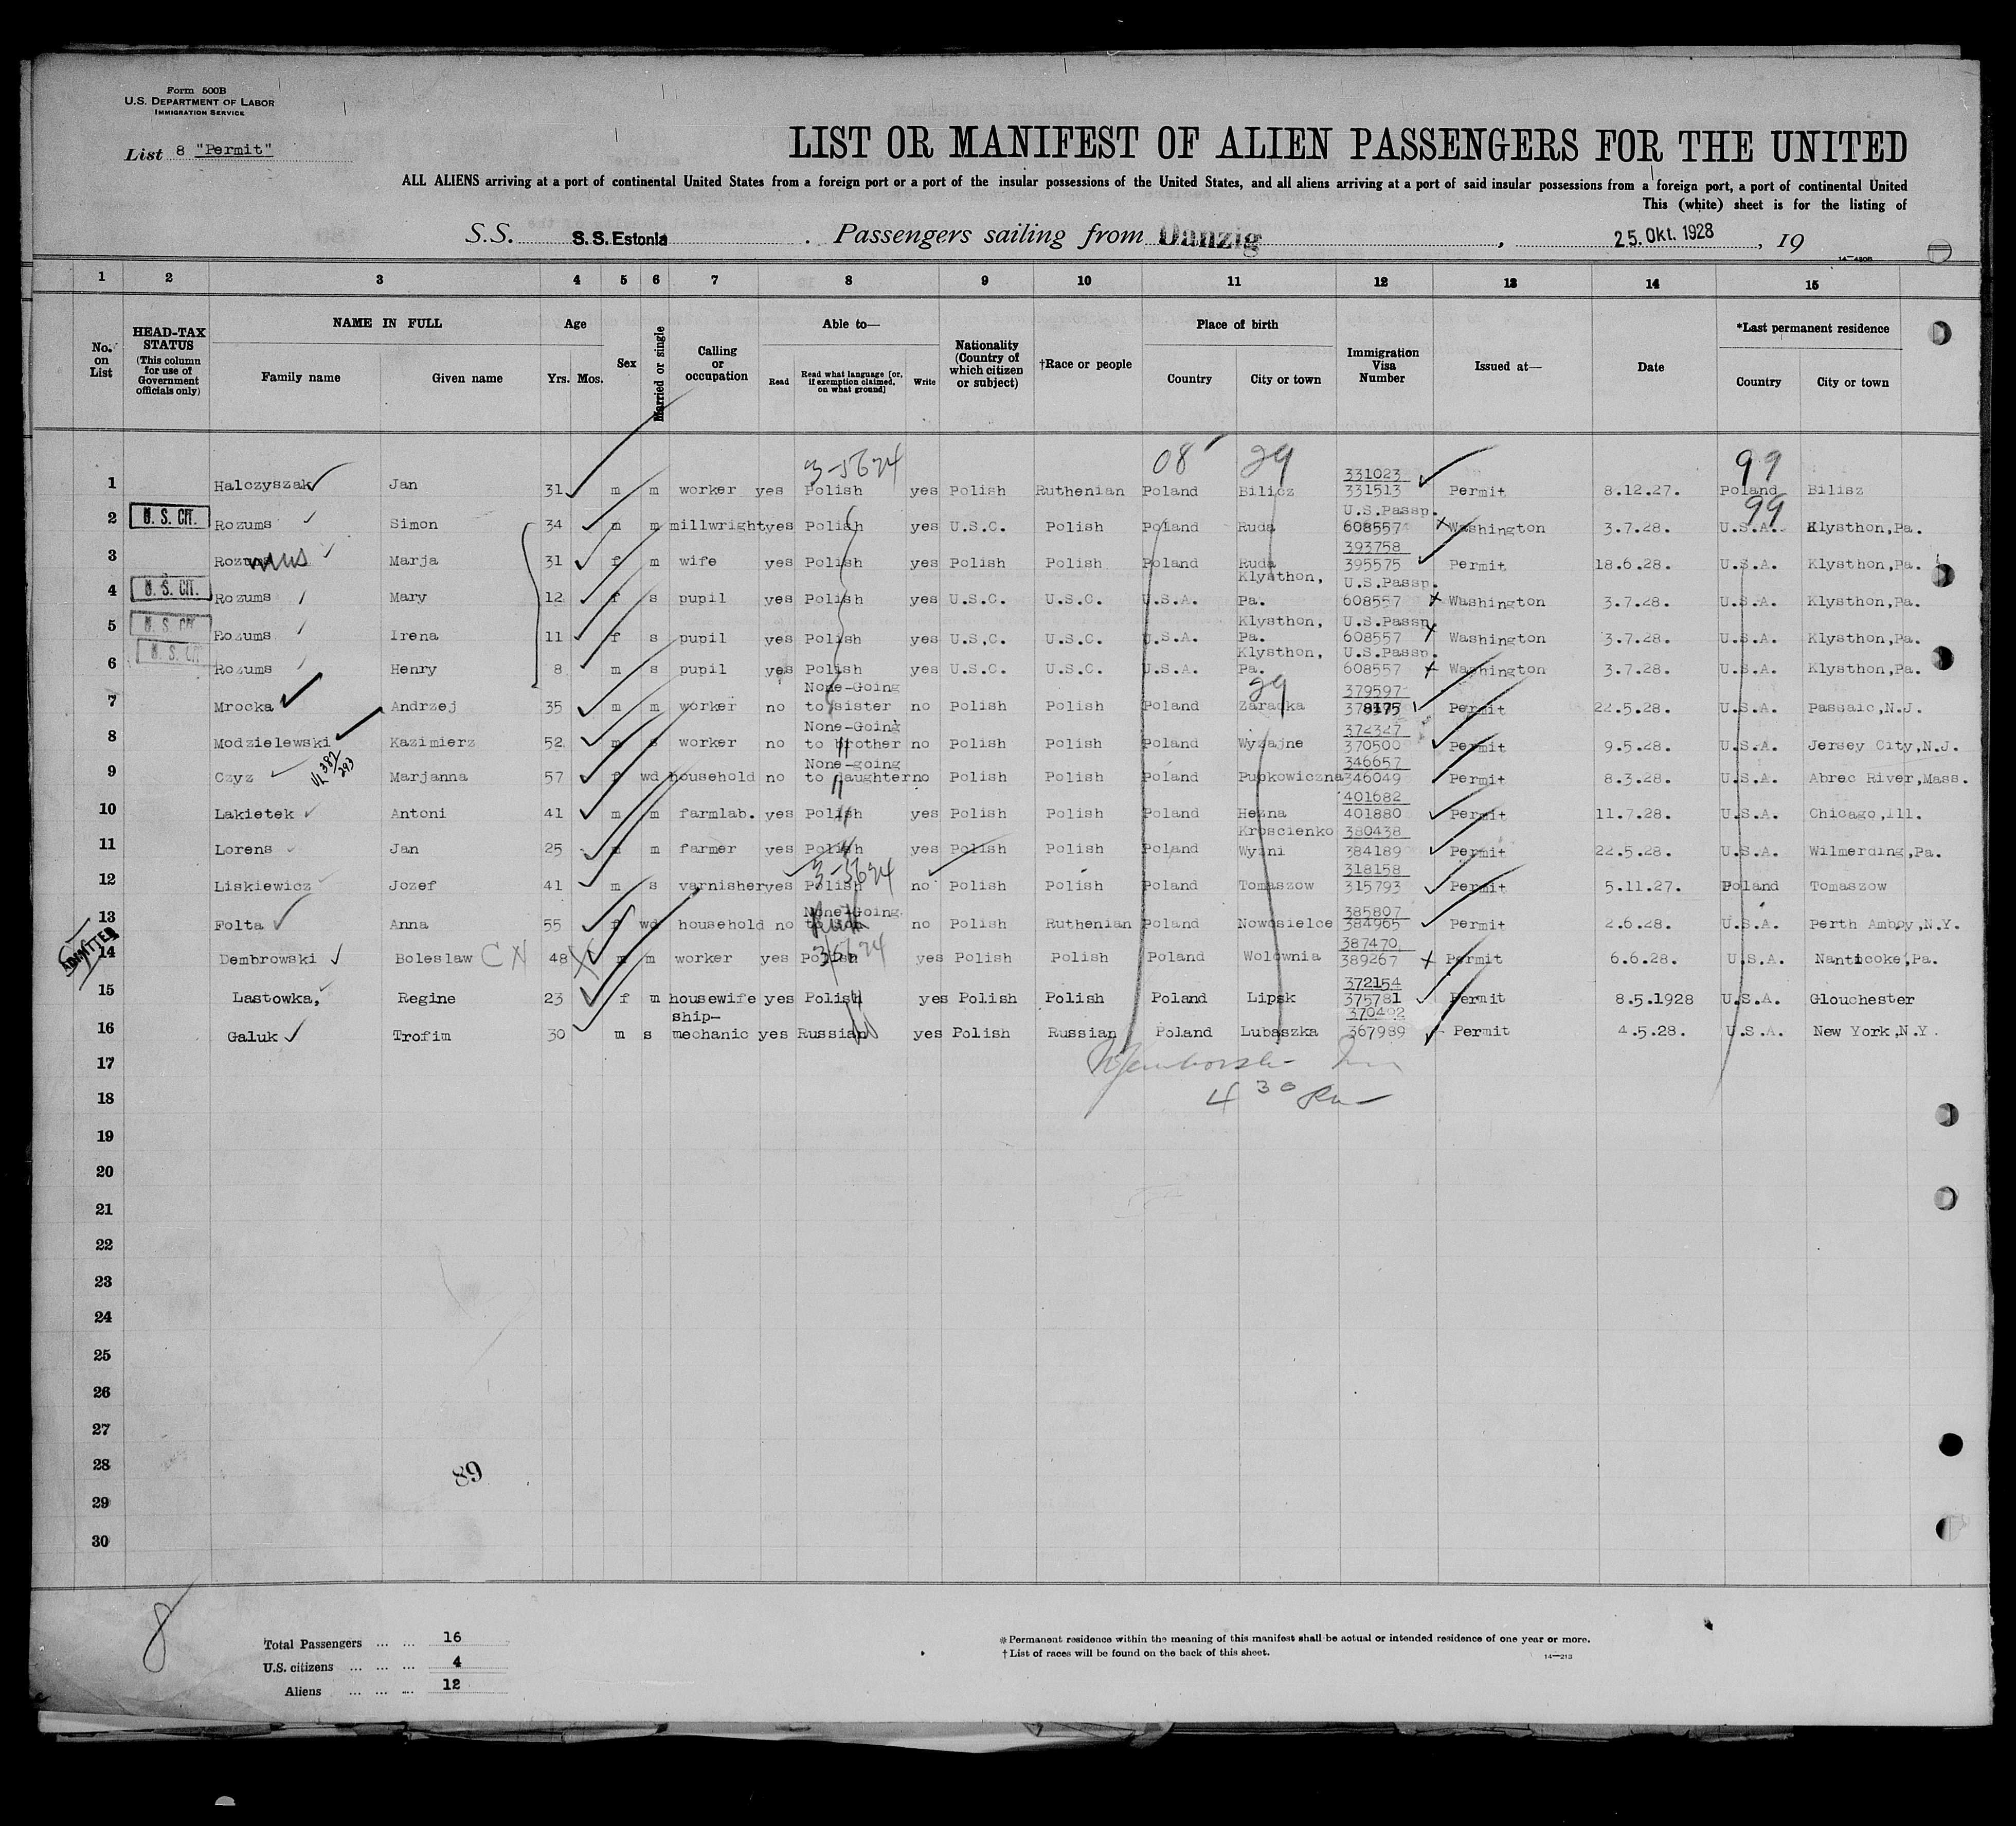 Form 500B
U.S. DEPARTMENT OF LABOR
IMMIGRATION SERVICE
List 8 "Permit"
LIST OR MANIFEST OF ALIEN PASSENGERS FOR THE UNITED
ALL ALIENS arriving at a port of continental United States from a foreign port or a port of the insular possessions of the United States, and all aliens arriving at a port of said insular possessions from a foreign port, a port of continental United
This (white) sheet is for the listing of
S.S. S.S. Estonia. Passengers sailing from Danzig, 25. Okt. 1928, 19
14—4808
1 2 3 4 5 6 7 8 9 10 11 12 13 14 15
No. on List
HEAD-TAX STATUS (This column for use of Government officials only)
NAME IN FULL
Family name Given name
Age
Yrs. Mos.
Sex
Married or single
Calling or occupation
Able to—
Read Read what language [or, if exemption claimed, on what ground] Write
Nationality (Country of which citizen or subject)
†Race or people
Place of birth
Country City or town
Immigration Visa Number
Issued at—
Date
*Last permanent residence
Country City or town
3-5624 08 29 99
331023
1 Halczyszak Jan 31 m m worker yes Polish yes Polish Ruthenian Poland Bilicz 331513 Permit 8.12.27. Poland Bilisz
U.S.Passp. 99
2 U. S. CIT. Rozums Simon 34 m m millwright yes Polish yes U.S.C. Polish Poland Ruda 608557 Washington 3.7.28. U.S.A. Klysthon,Pa.
393758
3 Rozums Marja 31 f m wife yes Polish yes Polish Polish Poland Ruda 395575 Permit 18.6.28. U.S.A. Klysthon,Pa.
Klysthon, U.S.Passp.
4 U. S. CIT. Rozums Mary 12 f s pupil yes Polish yes U.S.C. U.S.C. U.S.A. Pa. 608557 Washington 3.7.28. U.S.A. Klysthon,Pa.
Klysthon, U.S.Passp.
5 U. S. CIT. Rozums Irena 11 f s pupil yes Polish yes U.S,C. U.S.C. U.S.A. Pa. 608557 Washington 3.7.28. U.S.A. Klysthon,Pa.
Klysthon, U.S.Passp.
6 U. S. CIT. Rozums Henry 8 m s pupil yes Polish yes U.S.C. U.S.C. U.S.A. Pa. 608557 Washington 3.7.28. U.S.A. Klysthon,Pa.
None-Going 29 379597
7 Mrocka Andrzej 35 m m worker no to sister no Polish Polish Poland Permit 22.5.28. U.S.A. Passaic,N.J.
None-Going 372327
8 Modzielewski Kazimierz 52 m s worker no to brother no Polish Polish Poland Wyzajne 370500 Permit 9.5.28. U.S.A. Jersey City,N.J.
None-going 346657
9 Czyz Marjanna 57 f wd household no to daughter no Polish Polish Poland Pupkowiczna 346049 Permit 8.3.28. U.S.A. Abrec River,Mass.
401682
10 Lakietek Antoni 41 m m farmlab. yes Polish yes Polish Polish Poland Hezna 401880 Permit 11.7.28. U.S.A. Chicago,ill.
Kroscienko 380438
11 Lorens Jan 25 m m farmer yes Polish yes Polish Polish Poland Wyzni 384189 Permit 22.5.28. U.S.A. Wilmerding,Pa.
3-5624 318158
12 Liskiewicz Jozef 41 m s varnisher yes Polish no Polish Polish Poland Tomaszow 315793 Permit 5.11.27. Poland Tomaszow
None-Going 385807
13 Folta Anna 55 f wd household no to son no Polish Ruthenian Poland Nowosielce 384965 Permit 2.6.28. U.S.A. Perth Amboy,N.Y.
ADMITTED 35624 387470
14 Dembrowski Boleslaw 48 m m worker yes Polish yes Polish Polish Poland Wolownia 389267 Permit 6.6.28. U.S.A. Nanticoke,Pa.
372154
15 Lastowka, Regine 23 f m housewife yes Polish yes Polish Polish Poland Lipsk 375781 Permit 8.5.1928 U.S.A. Glouchester
ship- 370492
16 Galuk Trofim 30 m s mechanic yes Russian yes Polish Russian Poland Lubaszka 367989 Permit 4.5.28. U.S.A. New York,N.Y.
17
18 4 30
19
20
21
22
23
24
25
26
27
28
89
29
30
8
Total Passengers ... ... 16
U.S. citizens ... ... ... 4
Aliens ... ... ... 12
* Permanent residence within the meaning of this manifest shall be actual or intended residence of one year or more.
† List of races will be found on the back of this sheet.
14—213